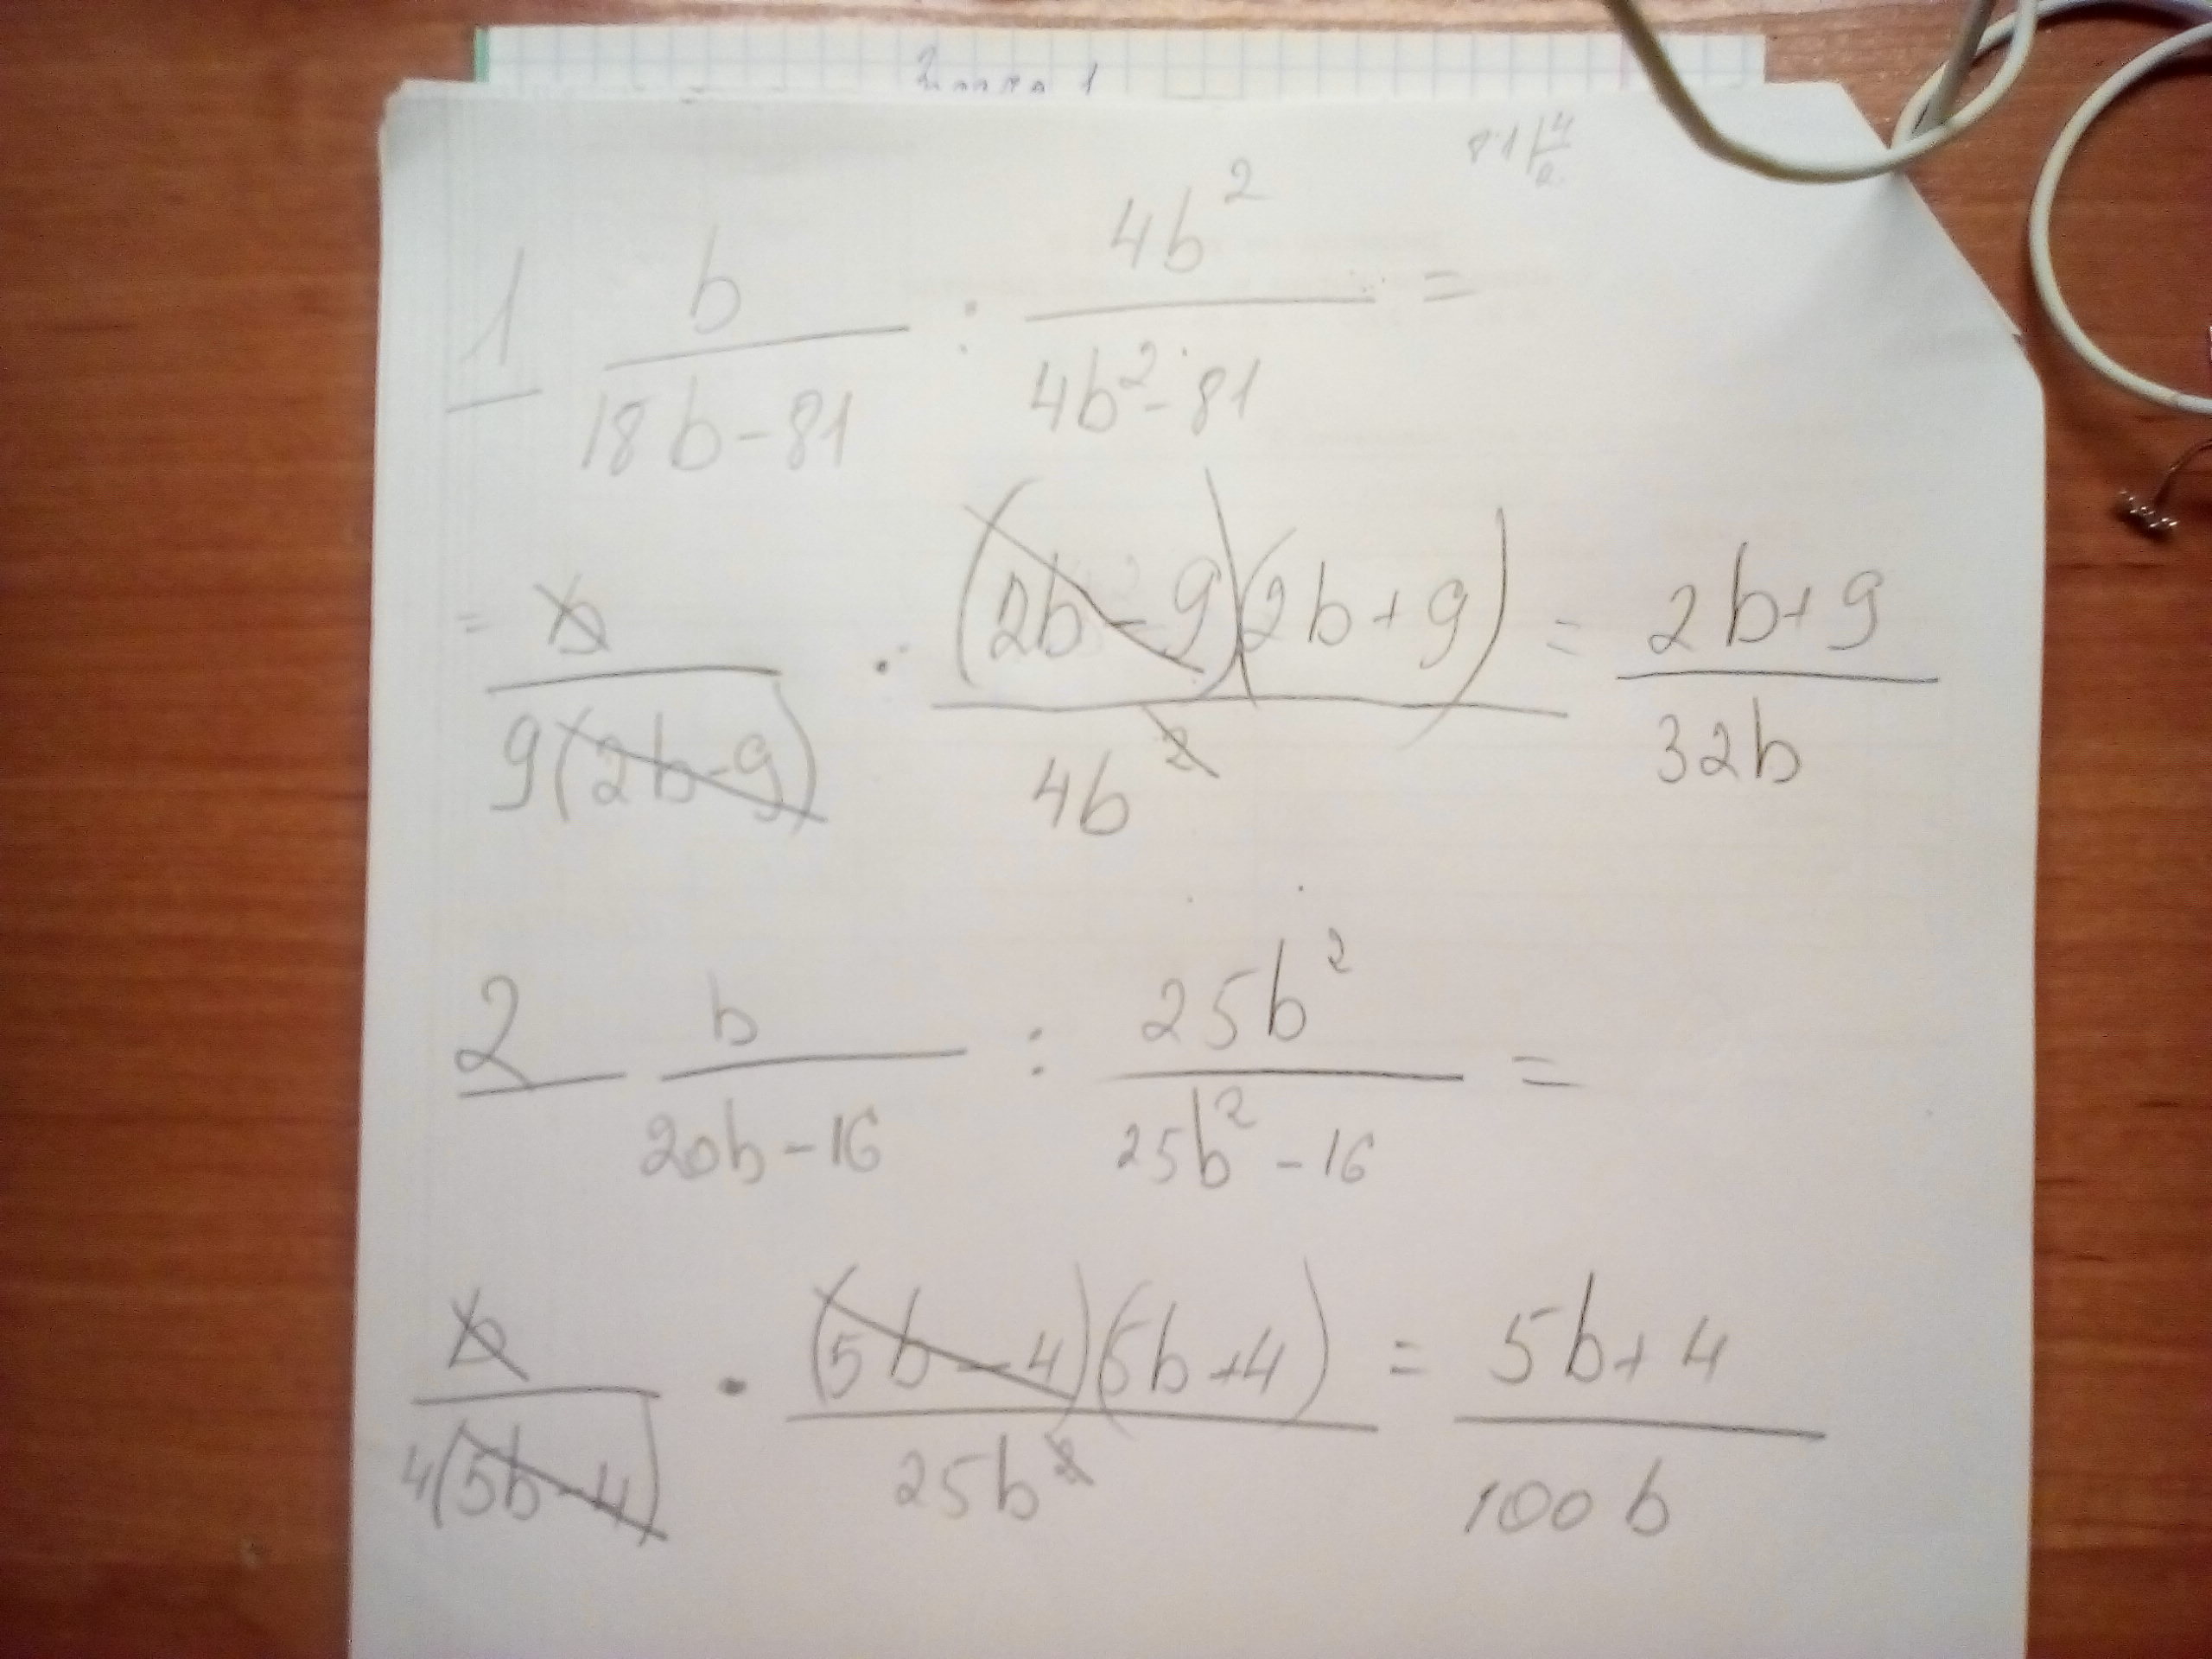 81 4
1 b/(18b-81) : 4b²/(4b²-81) =
= b/(9(2b-9)) · (2b-9)(2b+9)/(4b²) = (2b+9)/(32b)
2 b/(20b-16) : 25b²/(25b²-16) =
b/(4(5b-4)) · (5b-4)(5b+4)/(25b²) = (5b+4)/(100b)